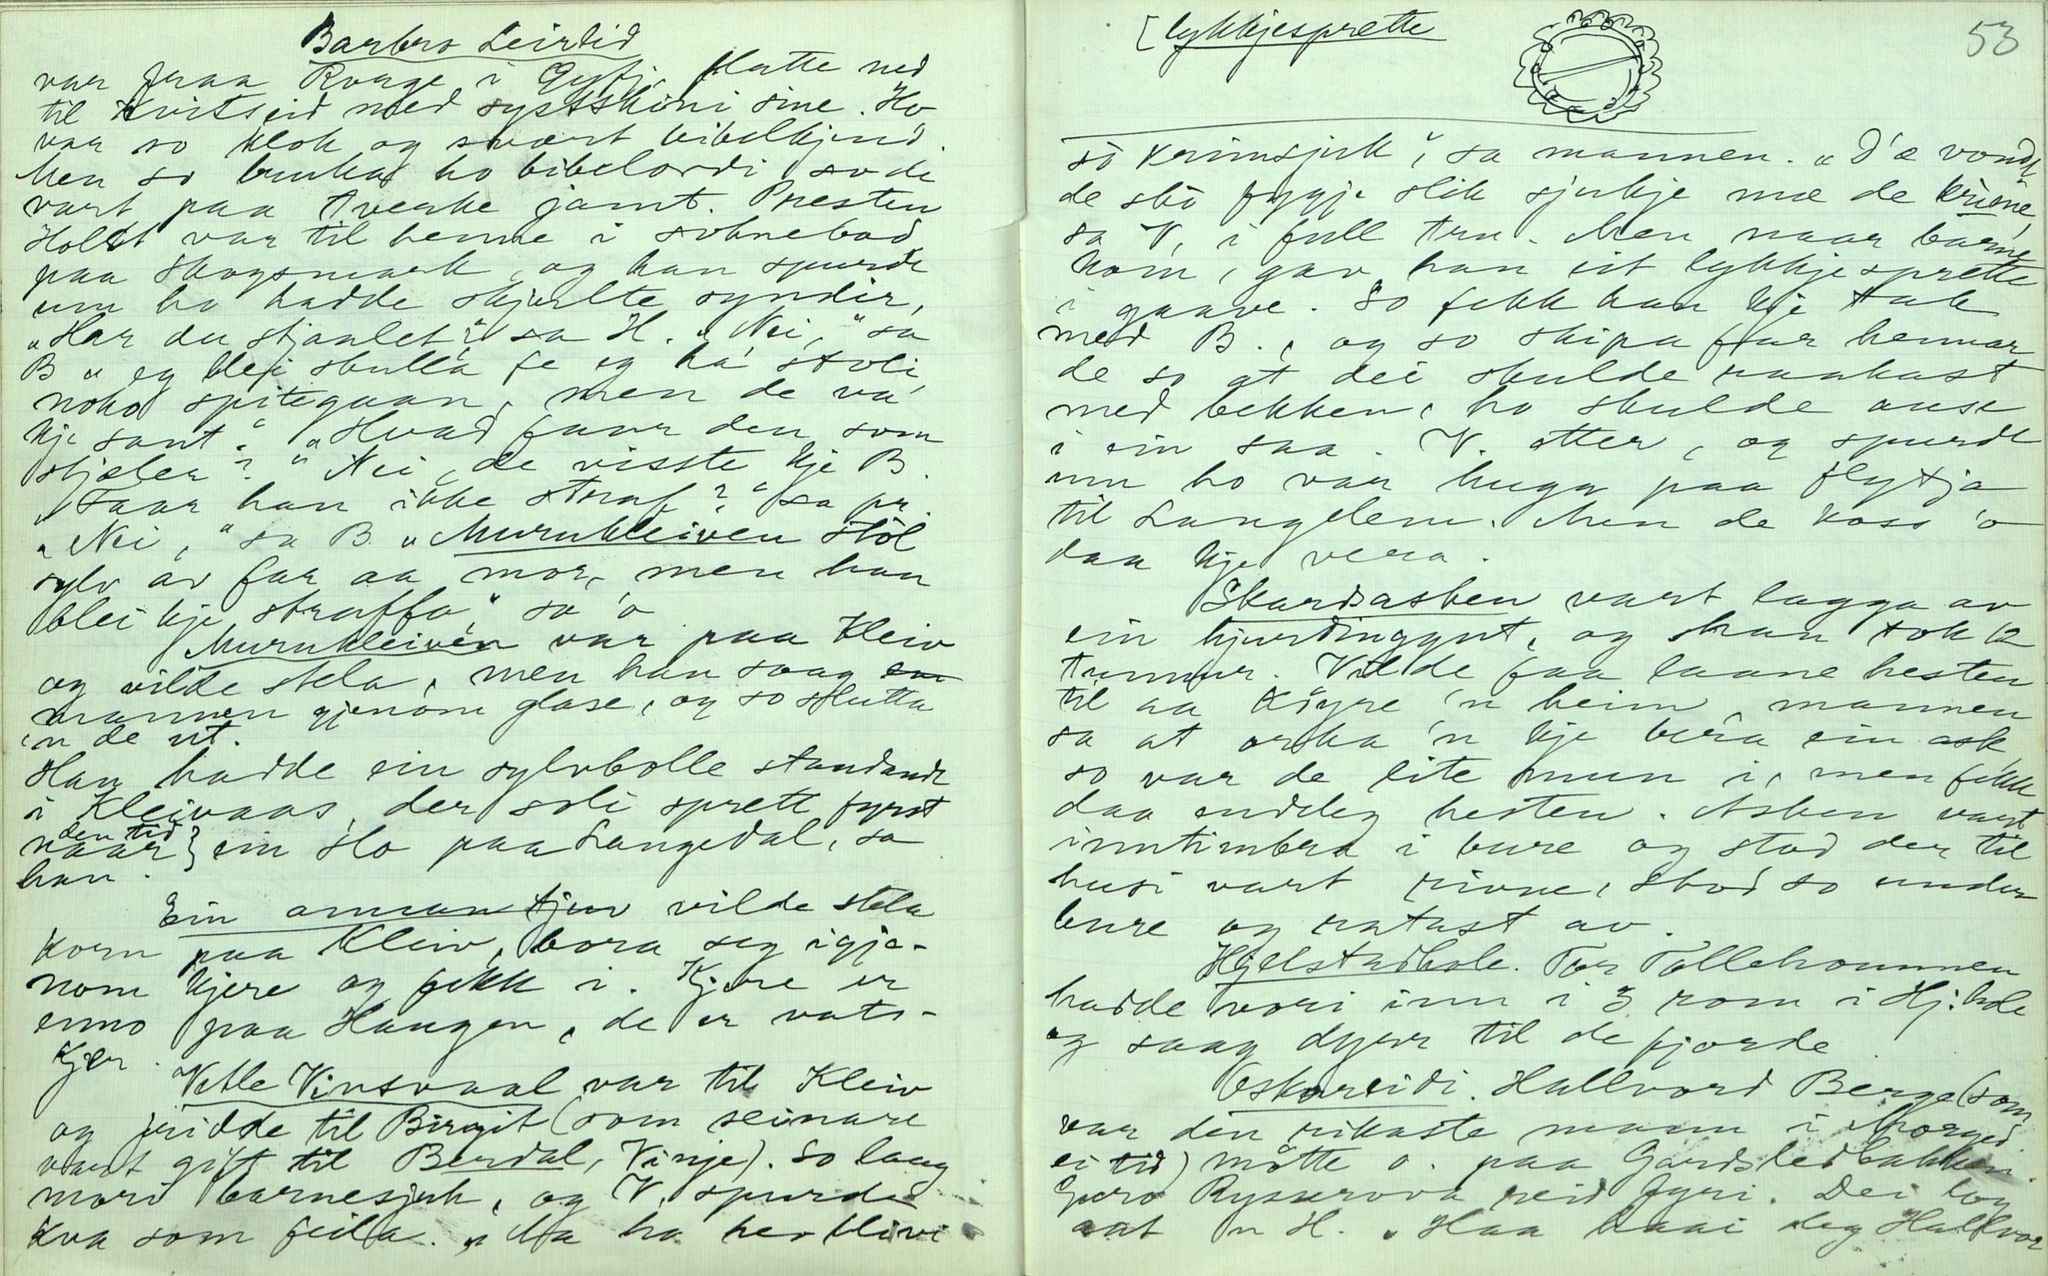 Barbro Leirlid
var fraa Rorge i Gyfj. flutte ned
til Kvitseid med syskhini sine. Ho
var so klok og svært bibelkjend.
Men so bruka ho bibelordi so de
vart paa tverke jamt. Presten
Holst var til henne i soknebod
paa Skogsmark, og han spurde
um ho hadde skjulte syndir,
"Har du stjaalet?" sa H. "Nei," sa
B " eg blei skulla fe eg ha' stoli
noko spitegaan, men de va'
kje sant." "Hvad faar den som
stjæler?" Nei, de visste kje B.
"Faar han ikke straf?" sa pr.
"Nei," sa B. "Murukleiven stol
sylv av far aa mor, men han
blei kje straffa," sa 'o
Murukleiven var paa Kleiv
og vilde stela, men han saag
mannen gjenom glase, og so slutta
'n de ut.
Han hadde ein sylvbolle standande
i Kleivaas, der soli sprett fyrst
den tid
naar } ein Ho paa Langedal, sa
han.
Ein annan tjuv vilde stela
korn paa Kleiv, bora seg igje-
nom kjere og fekk i. Kjere er
enno paa Haugen, de er vats-
kjer.
Vetle Vinsvaal var til Kleiv
og fridde til Birgit (som seinare
vart gift til Berdal, Vinje). So laag
mori barnesjuk, og V. spurde
kva som feila. "Ma ho her blivi
[lykkjesprette
53
so krimsjuk", sa mannen. "D'æ vondt
de sko fygje slik sjukje mæ de kriene,"
sa V, i full tru. Men naar barne
kom, gav han eit lykkjesprette
i gaave. So fekk han kje tak
med B., og so skipa far hennar
de so at dei skulde raakast
med bekken, ho skulde ause
i ein saa. V. etter, og spurde
um ho var huga paa flytja
til Langelem. Men de koss 'o
daa kje vera.
Skardsasken vart lagga av
ein hjurdinggut, og han tok 12
tunnur. Vilde faa laane hesten
til aa köyre 'n heim, mannen
sa at orka 'n kje bera ein ask
so var de lite mun i, men fekk
daa endeleg hesten. Asken vart
inntimbra i bure og stod der til
husi vart rivne, stod so under
bure og ratast av.
Hjelstadhole. Tor Tollehommen
hadde vori inn i 3 rom i Hj:hole
og saag dyrr til de fjorde.
Oskoreidi. Hallvord Berge (som
var den rikaste mann i Morged
ei tid) mötte o. paa Gardsledbakken.
Guro Rysserova reid fyri. Dei log
aat 'n H. "Haa haai deg Hallvor